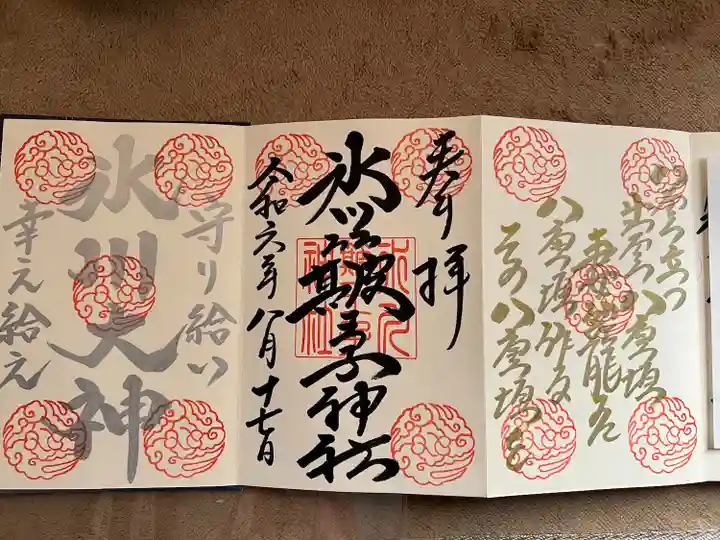 八雲たつ
出雲八重垣
八重垣作る
その八重垣を
奉拝
氷川簸王子神社
令和六年八月十七日
守り給い
氷川大神
幸え給え